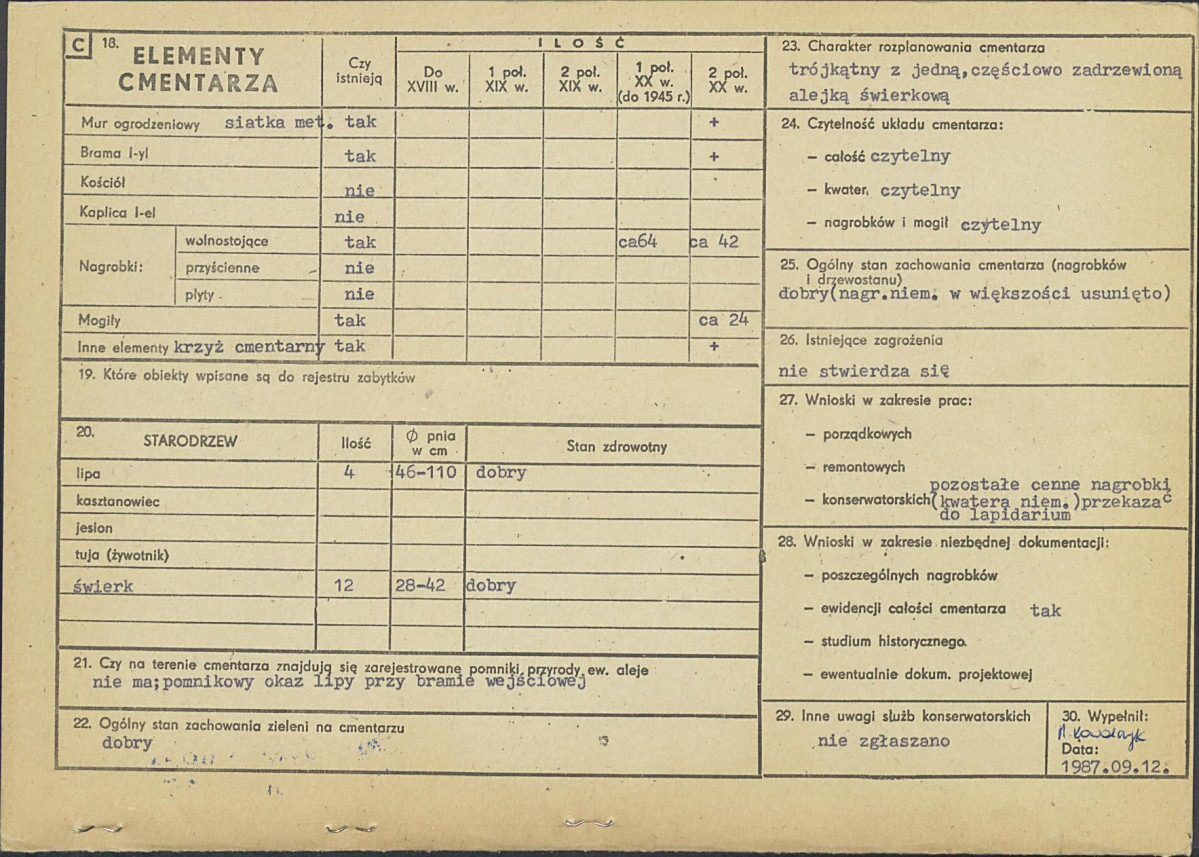 C 18. ELEMENTY CMENTARZA
Czy istnieją
ILOŚĆ
Do XVIII w.
1 poł. XIX w.
2 poł. XIX w.
1 poł. XX w. (do 1945 r.)
2 poł. XX w.
Mur ogrodzeniowy siatka met. tak +
Brama I-yl tak +
Kościół nie
Kaplica I-el nie
Nagrobki:
wolnostojące tak ca64 ca 42
przyścienne nie
płyty nie
Mogiły tak ca 24
Inne elementy krzyż cmentarny tak +
19. Które obiekty wpisane są do rejestru zabytków
20. STARODRZEW Ilość Ø pnia w cm Stan zdrowotny
lipa 4 46-110 dobry
kasztanowiec
jesion
tuja (żywotnik)
świerk 12 28-42 dobry
21. Czy na terenie cmentarza znajdują się zarejestrowane pomniki przyrody ew. aleje
nie ma;pomnikowy okaz lipy przy bramie wejściowej
22. Ogólny stan zachowania zieleni na cmentarzu
dobry
23. Charakter rozplanowania cmentarza
trójkątny z jedną,częściowo zadrzewioną
alejką świerkową
24. Czytelność układu cmentarza:
– całość czytelny
– kwater, czytelny
– nagrobków i mogił czytelny
25. Ogólny stan zachowania cmentarza (nagrobków
i drzewostanu)
dobry(nagr.niem. w większości usunięto)
26. Istniejące zagrożenia
nie stwierdza się
27. Wnioski w zakresie prac:
– porządkowych
– remontowych
– konserwatorskich pozostałe cenne nagrobki
(kwatera niem.)przekazać
do lapidarium
28. Wnioski w zakresie niezbędnej dokumentacji:
– poszczególnych nagrobków
– ewidencji całości cmentarza tak
– studium historycznego.
– ewentualnie dokum. projektowej
29. Inne uwagi służb konserwatorskich
nie zgłaszano
30. Wypełnił:
M Kowalczyk
Data:
1987.09.12.